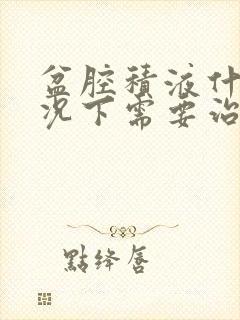 盆腔積液什
况下需要治
點绛唇